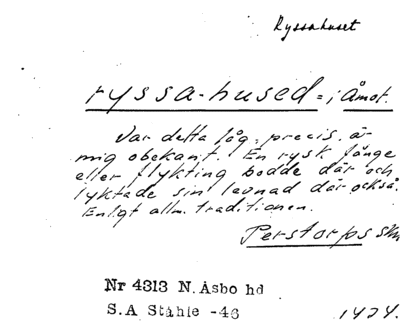 Ryssahuset
ryssa-hused = i Åmot.
Var detta låg, precis, är
mig obekant. En rysk fånge
eller flykting bodde där och
lyktade sin levnad där också.
Enligt allm. traditionen.
Perstorps skn
Nr 4313 N. Åsbo hd
S.A Ståhle -46
1424.